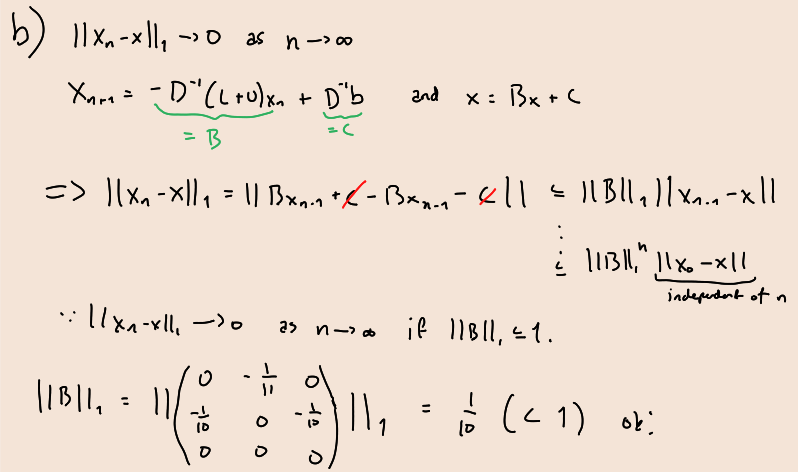 b) ||x_n - x||_1 → 0 as n → ∞
x_{n+1} = -D^{-1}(L+U)x_n + D^{-1}b and x = Bx + C
= B = C
=> ||x_n - x||_1 = ||Bx_{n-1} + C - Bx_{n-1} - C|| ≤ ||B||_1 ||x_{n-1} - x||
⋮
≤ ||B||_1^n ||x_0 - x||
independent of n
∵ ||x_n - x||_1 → 0 as n → ∞ if ||B||_1 ≤ 1.
||B||_1 = || ( 0 -1/11 0 ; -1/10 0 -1/10 ; 0 0 0 ) ||_1 = 1/10 (< 1) ok: